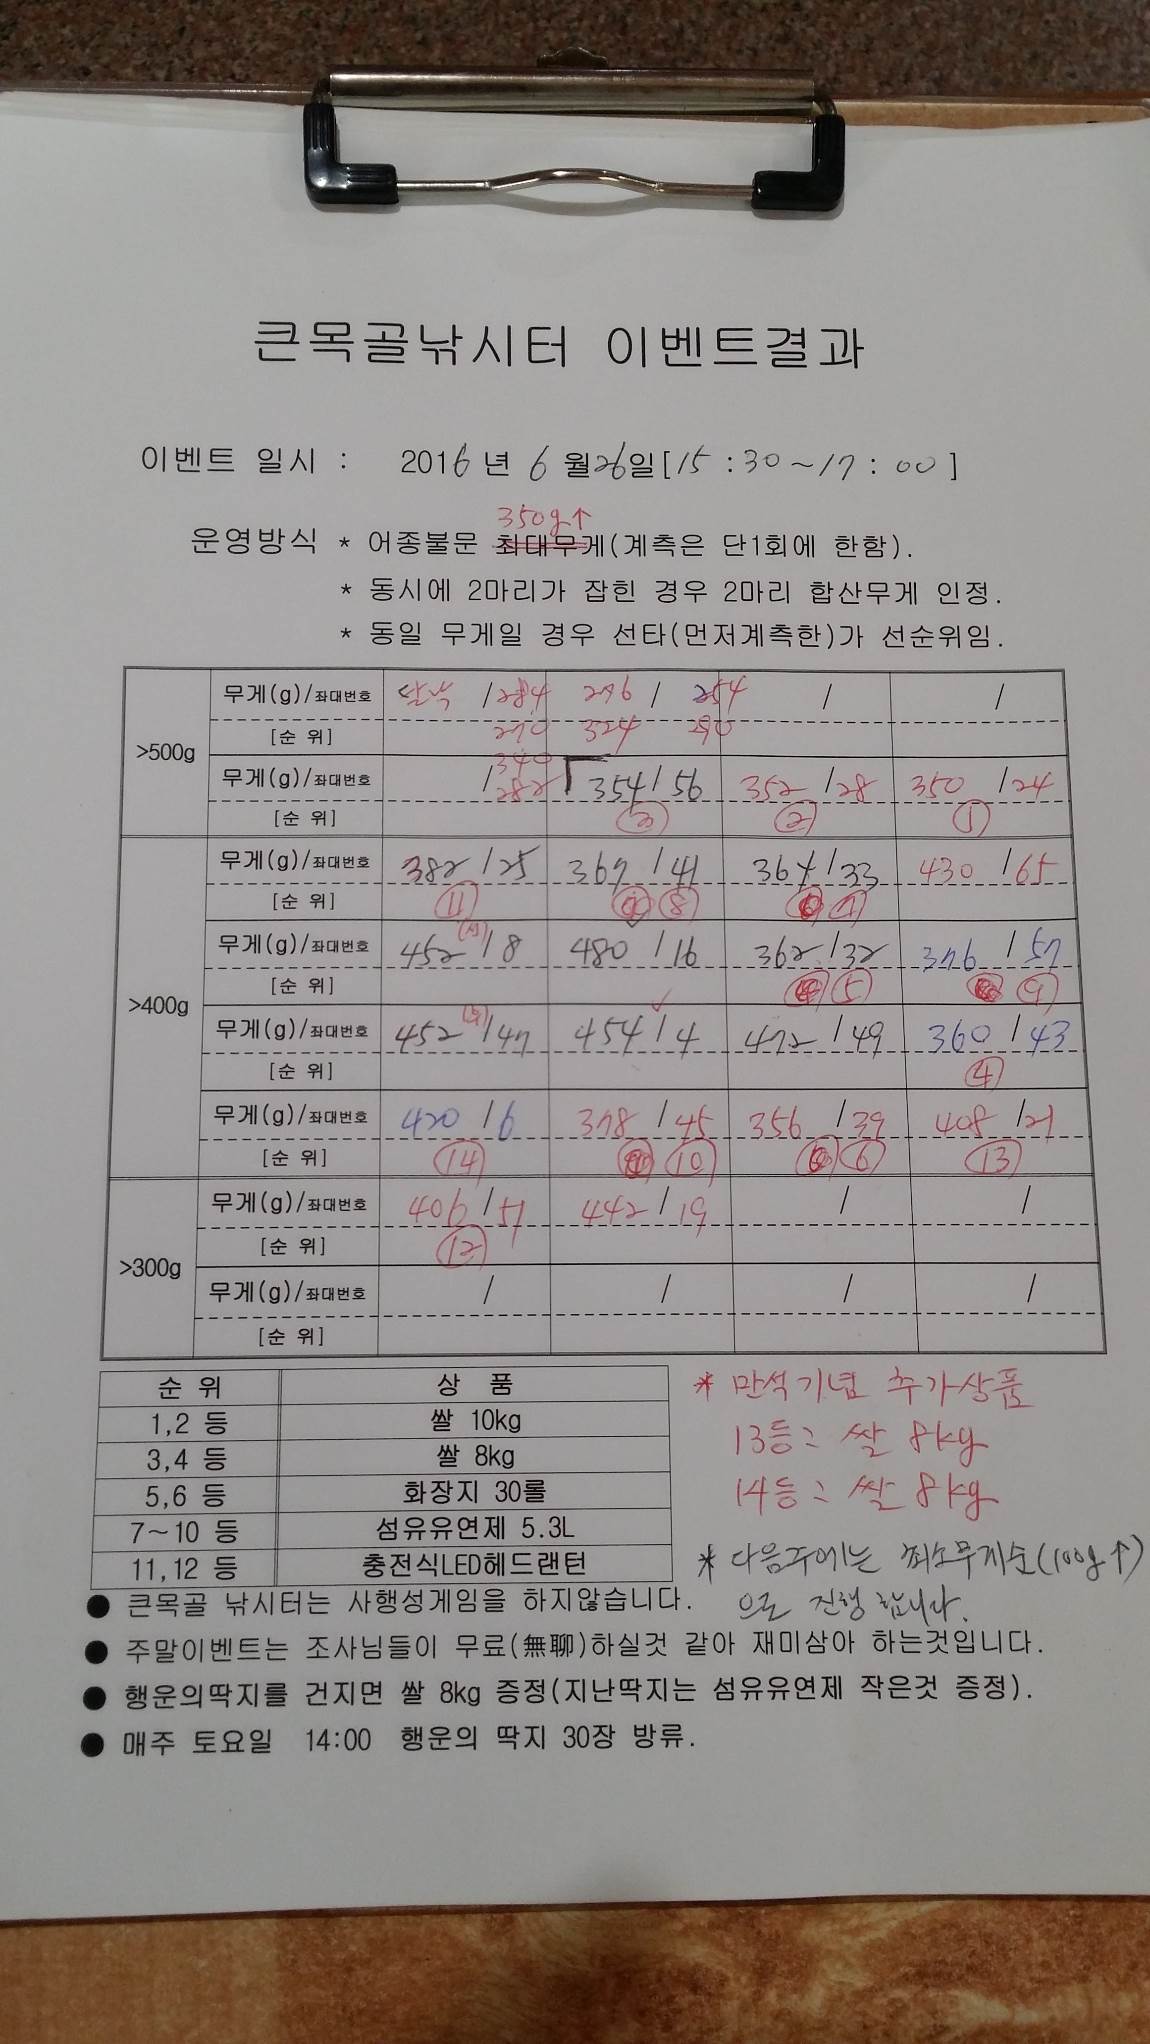 큰목골낚시터 이벤트결과
이벤트 일시 : 2016년 6월26일[15:30~17:00]
350g↑
운영방식 * 어종불문 최대무게(계측은 단1회에 한함).
* 동시에 2마리가 잡힌 경우 2마리 합산무게 인정.
* 동일 무게일 경우 선타(먼저계측한)가 선순위임.
>500g
무게(g)/좌대번호 /284 276 / 254 / /
[순 위] 270 324 290
340
무게(g)/좌대번호 /282 354/56 352/28 350/24
[순 위] ③ ② ①
>400g
무게(g)/좌대번호 382/25 367/41 364/33 430/65
[순 위] ⑪ ⑧ ⑦
무게(g)/좌대번호 452/8 480/16 362/32 376/57
[순 위] ⑤ ⑨
무게(g)/좌대번호 452/47 454/4 472/49 360/43
[순 위] ④
무게(g)/좌대번호 420/6 378/45 356/39 408/21
[순 위] ⑭ ⑩ ⑥ ⑬
>300g
무게(g)/좌대번호 406/51 442/19 / /
[순 위] ⑫
무게(g)/좌대번호 / / / /
[순 위]
순 위 상 품
1,2 등 쌀 10kg
3,4 등 쌀 8kg
5,6 등 화장지 30롤
7~10 등 섬유유연제 5.3L
11,12 등 충전식LED헤드랜턴
* 만석기념 추가상품
13등: 쌀 8kg
14등: 쌀 8kg
* 다음주에는 최소무게순(100g↑)
으로 진행합니다.
● 큰목골 낚시터는 사행성게임을 하지않습니다.
● 주말이벤트는 조사님들이 무료(無聊)하실것 같아 재미삼아 하는것입니다.
● 행운의딱지를 건지면 쌀 8kg 증정(지난딱지는 섬유유연제 작은것 증정).
● 매주 토요일 14:00 행운의 딱지 30장 방류.